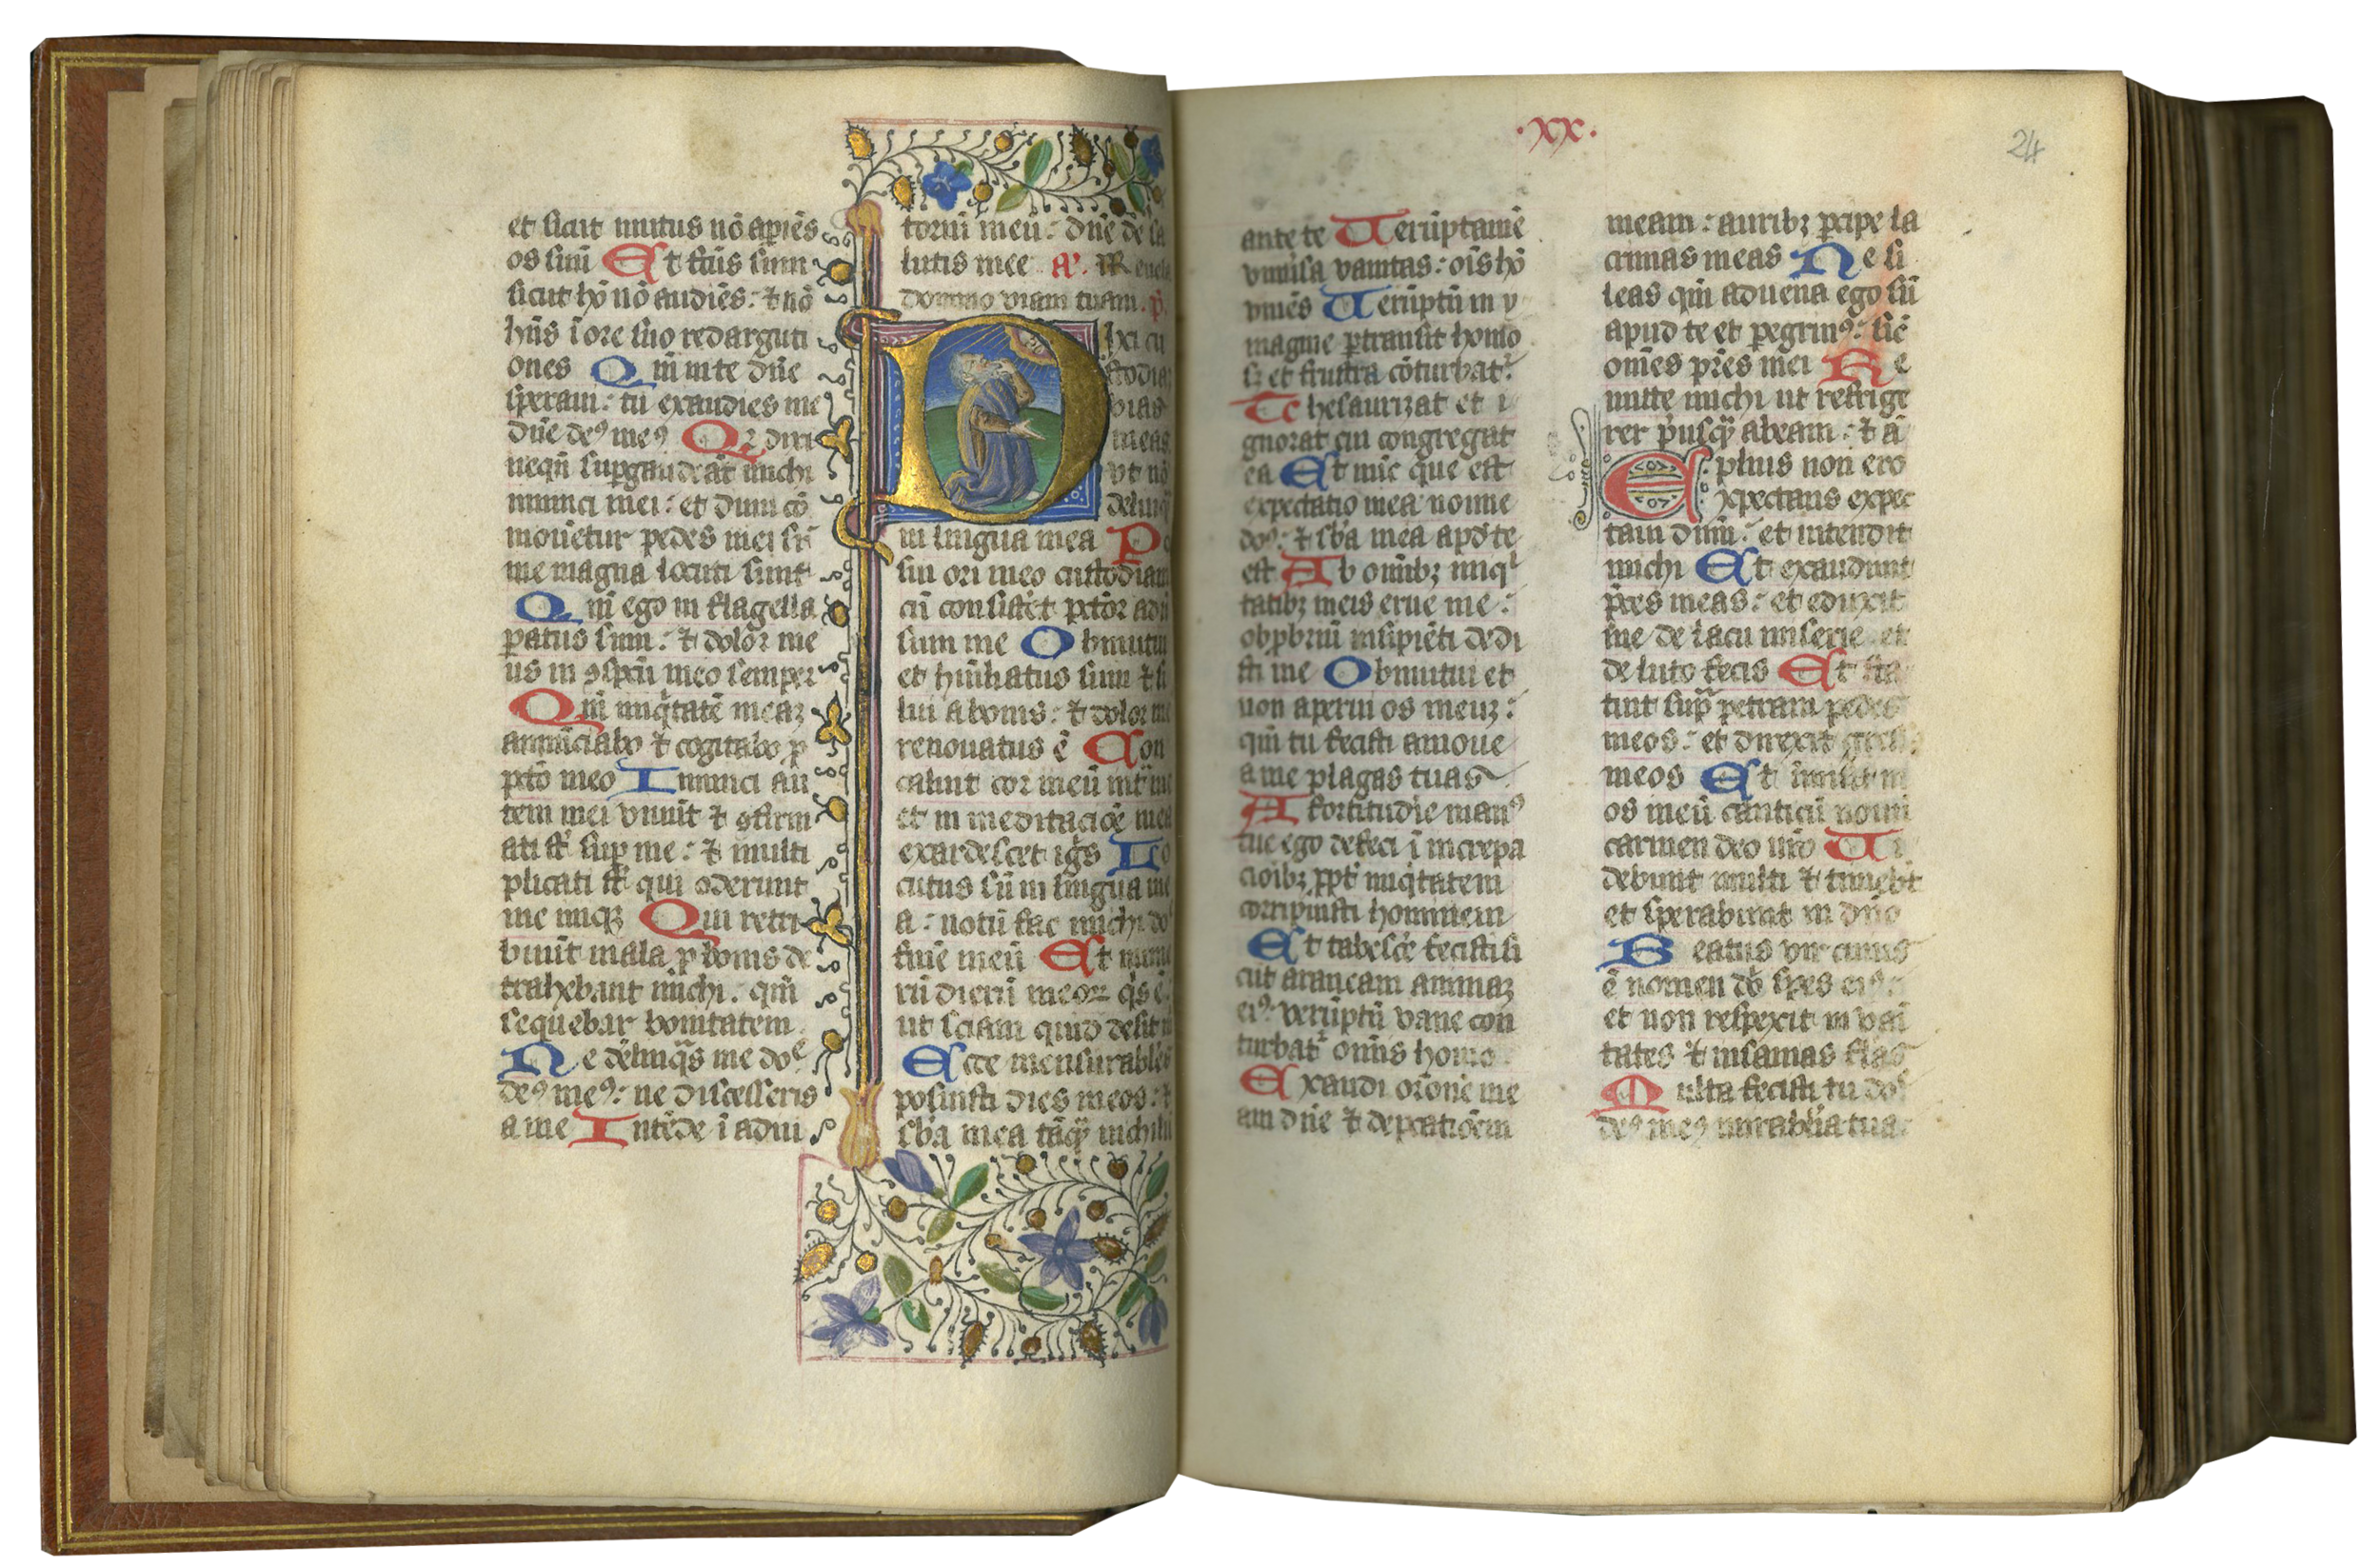 et sicut mutus nō apiēs
os suū Et fc̄us sum
sicut hō nō audiēs: ⁊ nō
hn̄s ī ore suo redarguti
ones Qm̄ in te dn̄e
speraui: tu exaudies me
dn̄e deꝰ meꝰ Qꝛ dixi
neqn̄ supgaudeāt michi
inimici mei: et dum cō
mouētur pedes mei sr̄
me magna locuti sunt
Qm̄ ego in flagella
ꝑatus sum: ⁊ dolor me
us in ꝯspcū meo semper
Qm̄ iniq̇tatē meaꝫ
annūciabo ⁊ cogitabo ꝓ
pctō meo Inimici au
tem mei viuūt ⁊ ꝯfirm
ati sṫ suꝑ me: ⁊ multi
plicati sṫ qui oderunt
me iniq̄ Qui retri
buūt mala ꝓ bonis de
trahebant michi. qm̄
sequebar bonitatem
Ne dēlinq̄s me doᵉ
deꝰ meꝰ: ne discesseris
a me Intēde ī adiu
toriū meū: dn̄e de sa
lutis mee A. Reuela
domino viam tuam. p̄
Dixi cu
stodiā
vias
meas
vt nō
delinq̄
in lingua mea Po
sui ori meo custodiam
cū consistēt pctōr adū
sum me Obmutui
et hūiliatus sum ⁊ si
lui a bonis: ⁊ dolor me
renouatus ē Con
caluit cor meū int̄ me
et in meditaciōe mea
exardescet igīs Lo
cutus sū in lingua me
a: notū fac michi do
finē meū Et nume
rū dierū meoꝝ q̇s ē
ut sciam quid desit m
Ecce mensurabłes
posuisti dies meos: ⁊
sb̄a mea tāq̄ nichilū
·xx·
24
ante te Uerūptamē
vniūsa vanitas: oīs hō
viuēs Uerūptū in y
magine ꝑtransit homo
s; et frustra cōturbatʳ
Thesaurizat et i
gnorat cui congregat
ea Et nūc que est
expectatio mea nonne
doᵘ: ⁊ sb̄a mea apd te
est Ab omībꝫ iniqⁱ
tatibꝫ meis erue me:
obꝓbriū insipiēti dedi
sti me Obmutui et
non aperui os meuꝫ:
qm̄ tu fecisti amoue
a me plagas tuas
A fortitudīe manꝰ
tue ego defeci ī increpa
cioībꝫ ꝓpt iniq̇tatem
corripuisti hominem
Et tabescē fecisti si
cut araneam animaꝫ
eiꝰ: verūptū vane con
turbatʳ omīs homo
Exaudi orōne me
am dn̄e ⁊ depcatiōem
meam: auribꝫ ꝑcipe la
crimas meas Ne si
leas qm̄ aduena ego sū
apud te et ꝑegrinꝰ: sic̄
omēs prēs mei Re
mitte michi ut refrige
rer p̄usq̄ abeam: ⁊ ā
plius non ero
Expectans expec
taui dnm̄: et intendit
michi Et exaudiuit
p̄ces meas: et eduxit
me de lacu miserie et
de luto fecis Et sta
tuit supᵃ petram pedes
meos: et direxit gress
meos Et īmisit in
os meū canticū nouū
carmen deo nr̄o Ui
debunt multi ⁊ timebt̄
et sperabunt in dn̄o
Beatus vir cuius
ē nomen dō spes eiꝰ:
et non respexit in vai
tates ⁊ insanias flās
Multa fecisti tu doᵉ
deꝰ meꝰ mirabłia tua: